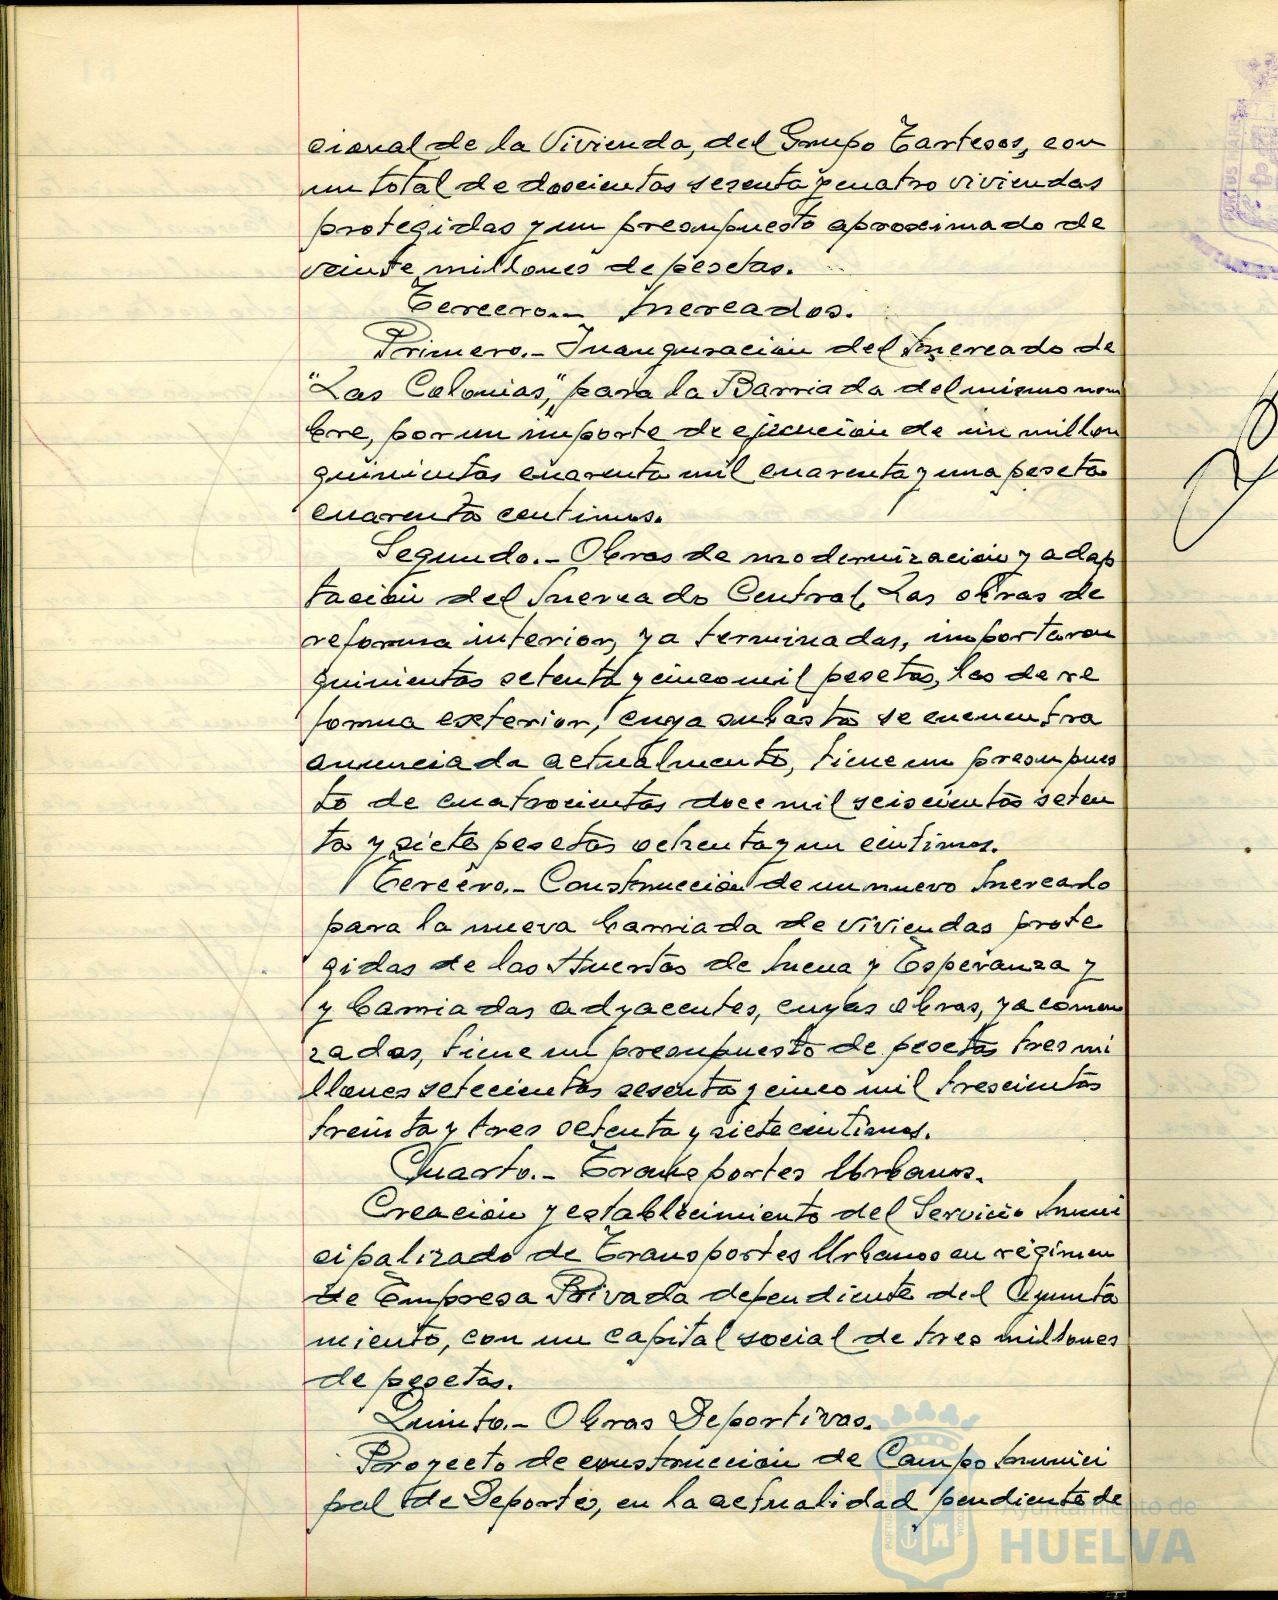 cional de la Vivienda, del Grupo Tartesos, con
un total de doscientas sesenta y cuatro viviendas
protegidas y un presupuesto aproximado de
veinte millones de pesetas.
Tercero.- Mercados.
Primero.- Inauguración del Mercado de
"Las Colonias," para la Barriada del mismo nom
bre, por un importe de ejecución de un millon
quinientas cuarenta mil cuarenta y una peseta
cuarenta centimos.
Segundo.- Obras de modernización y adap
tación del Mercado Central, Las obras de
reforma interior, ya terminadas, importaron
quinientas setenta y cinco mil pesetas, las de re
forma exterior, cuya subasta se encuentra
anunciada actualmente, tiene un presupues
to de cuatrocientas doce mil seiscientas seten
ta y siete pesetas ochenta y un centimos.
Tercero.- Construcción de un nuevo Mercado
para la nueva barriada de viviendas prote
gidas de las Huertas de Mena y Esperanza y
y barriadas adyacentes, cuyas obras, ya comen
zadas, tiene un presupuesto de pesetas tres mi
llones setecientas sesenta y cinco mil trescientas
treinta y tres setenta y siete centimos.
Cuarto.- Transportes Urbanos.
Creación y establecimiento del Servicio Muni
cipalizado de Transportes Urbanos en régimen
de Empresa Privada dependiente del Ayunta
miento, con un capital social de tres millones
de pesetas.
Quinto.- Obras Deportivas.
Proyecto de construcción de Campo Munici
pal de Deportes, en la actualidad pendiente de
Ayuntamiento de
HUELVA